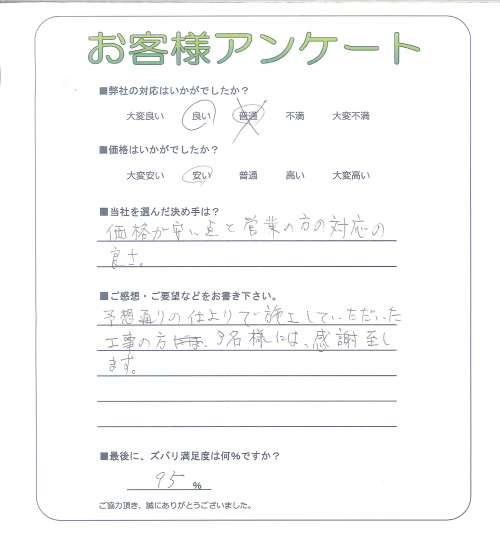 お客様アンケート
■弊社の対応はいかがでしたか？
大変良い 良い 普通 不満 大変不満
■価格はいかがでしたか？
大変安い 安い 普通 高い 大変高い
■当社を選んだ決め手は？
価格が安い点と営業の方の対応の
良さ。
■ご感想・ご要望などをお書き下さい。
予想通りの仕上りで施工していただいた
工事の方 3名様には、感謝至し
ます。
■最後に、ズバリ満足度は何％ですか？
95 ％
ご協力頂き、誠にありがとうございました。